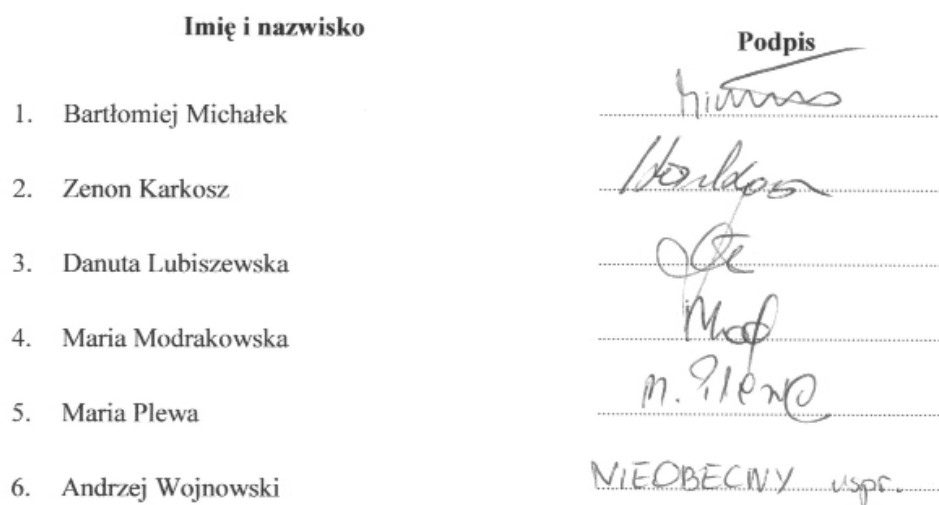 Imię i nazwisko Podpis
1. Bartłomiej Michałek
2. Zenon Karkosz
3. Danuta Lubiszewska
4. Maria Modrakowska
5. Maria Plewa M. Plewa
6. Andrzej Wojnowski NIEOBECNY uspr.